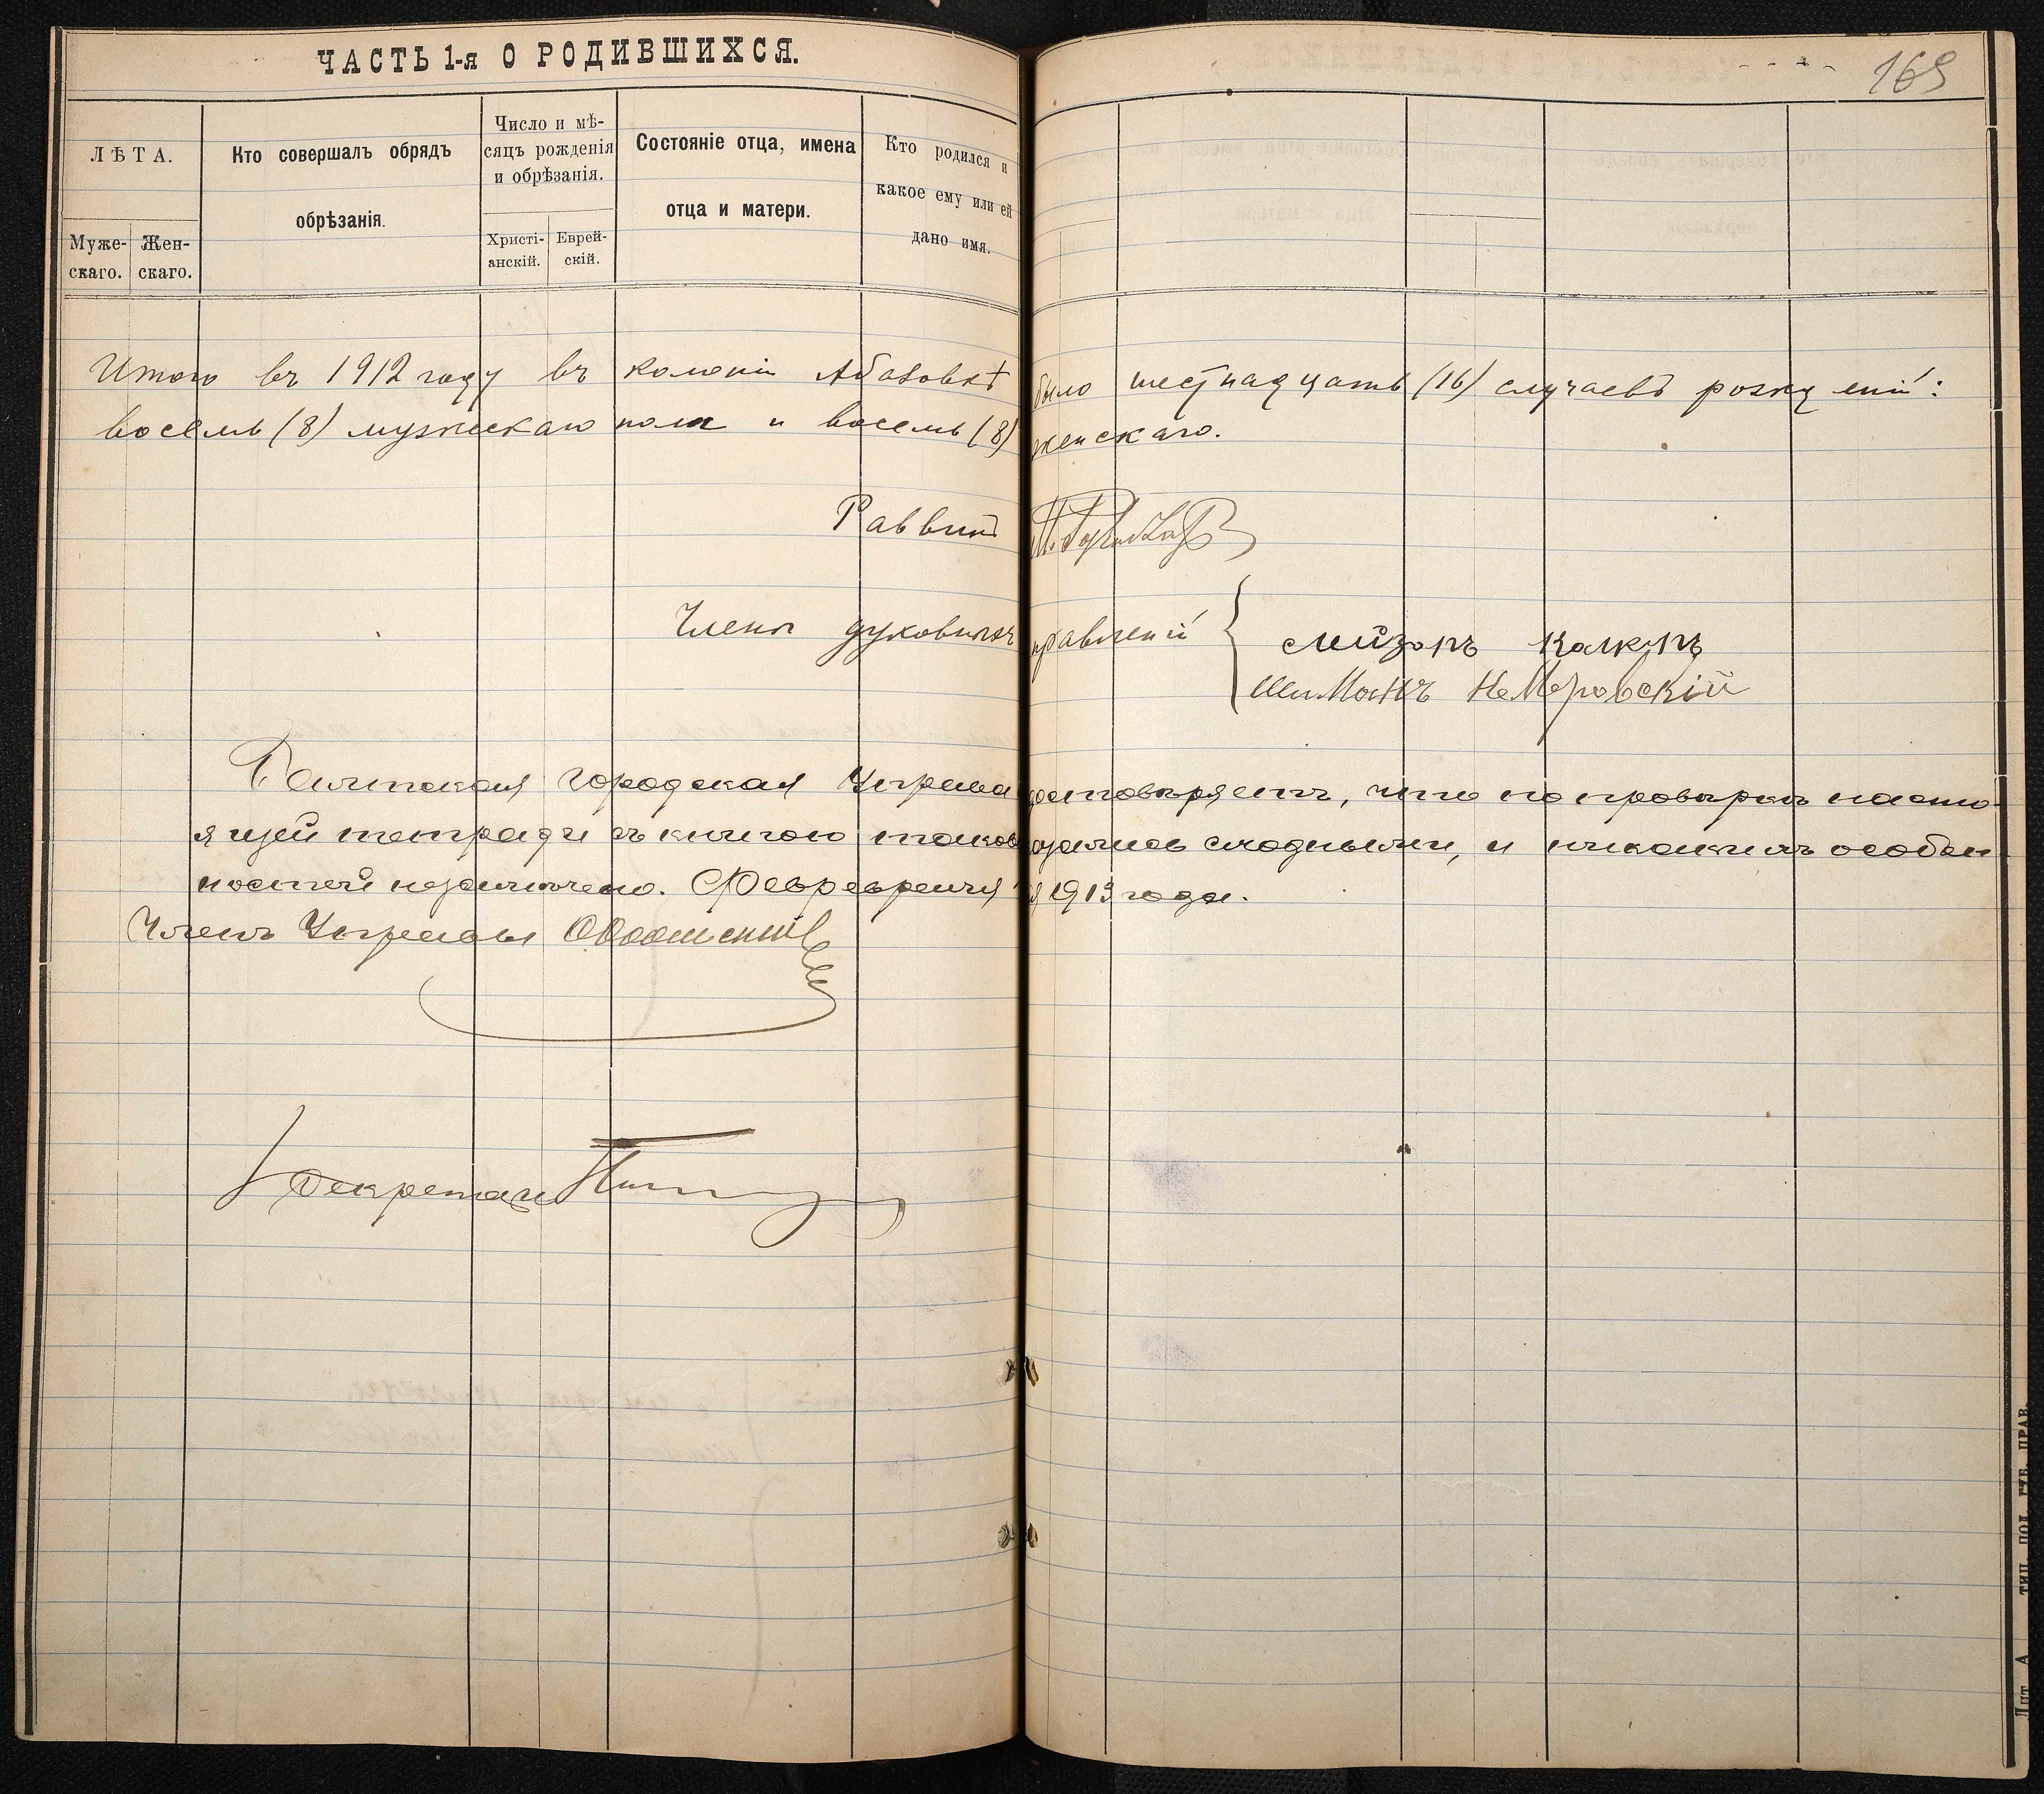 ЧАСТЬ 1-я О РОДИВШИХСЯ.
169
ЛѢТА.
Муже-
скаго.
Жен-
скаго.
Кто совершалъ обрядъ
обрѣзанія.
Число и мѣ-
сяцъ рожденія
и обрѣзанія.
Христі-
анскій.
Еврей-
скій.
Состояніе отца, имена
отца и матери.
Кто родился и
какое ему или ей
дано имя.
Итого въ 1912 году въ колоніи Абазовкѣ было шестнадцать (16) случаевъ рожденій:
восемь (8) мужескаго пола и восемь (8) женскаго.
Раввинъ
Члены духовныхъ правленій
Мейзоръ
Шиманъ Немеровскій
Балтская Городская Управа удостовѣряетъ, что по провѣркѣ насто-
ящей тетради съ книгою таков оказались сходными, и никакихъ особен-
ностей незамѣчено. Февревраля 1913 года.
Членъ Управы
Секретарь
Лит. А. ТИП. ПОД. ГУБ. ПРАВ.